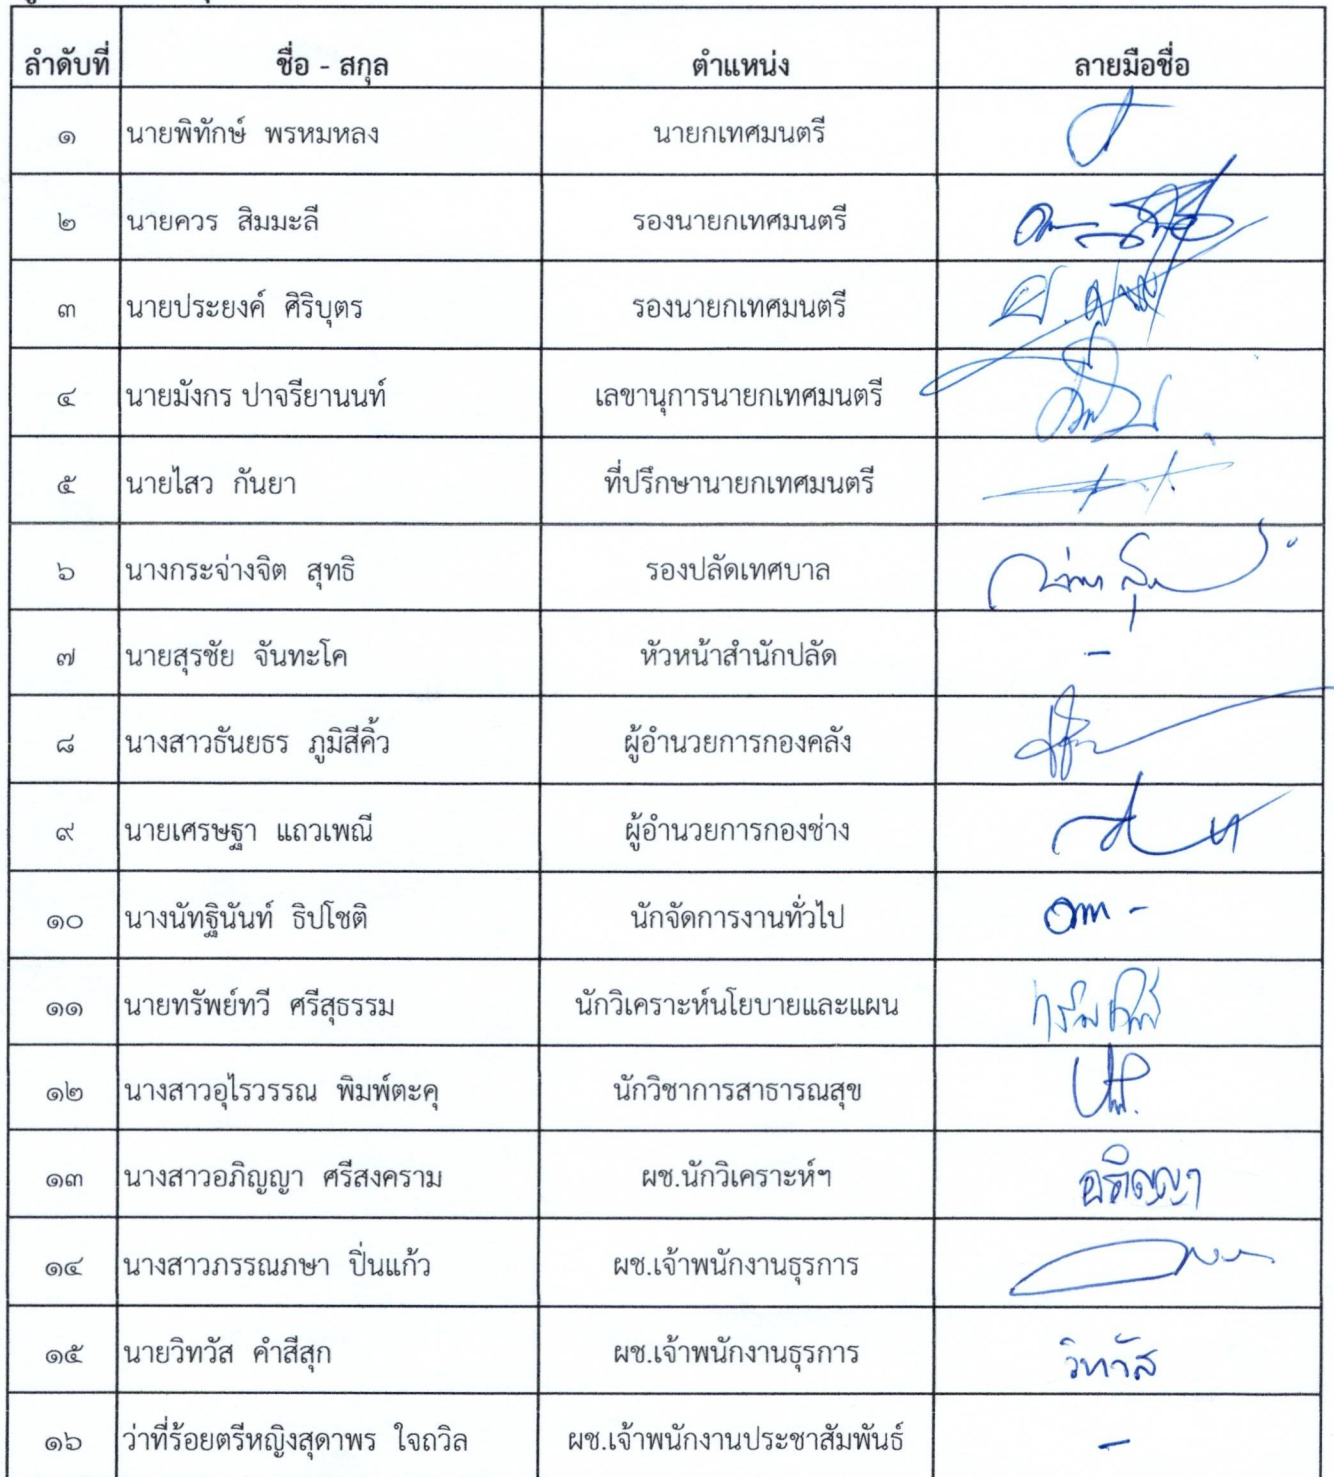 ลำดับที่ ชื่อ - สกุล ตำแหน่ง ลายมือชื่อ
๑ นายพิทักษ์ พรหมหลง นายกเทศมนตรี
๒ นายควร สิมมะลี รองนายกเทศมนตรี
๓ นายประยงค์ ศิริบุตร รองนายกเทศมนตรี
๔ นายมังกร ปาจรียานนท์ เลขานุการนายกเทศมนตรี
๕ นายไสว กันยา ที่ปรึกษานายกเทศมนตรี
๖ นางกระจ่างจิต สุทธิ รองปลัดเทศบาล
๗ นายสุรชัย จันทะโค หัวหน้าสำนักปลัด -
๘ นางสาวธันยธร ภูมิสีคิ้ว ผู้อำนวยการกองคลัง
๙ นายเศรษฐา แถวเพณี ผู้อำนวยการกองช่าง
๑๐ นางนัทฐินันท์ ธิปโชติ นักจัดการงานทั่วไป
๑๑ นายทรัพย์ทวี ศรีสุธรรม นักวิเคราะห์นโยบายและแผน
๑๒ นางสาวอุไรวรรณ พิมพ์ตะคุ นักวิชาการสาธารณสุข
๑๓ นางสาวอภิญญา ศรีสงคราม ผช.นักวิเคราะห์ฯ อภิญญา
๑๔ นางสาวภรรณภษา ปิ่นแก้ว ผช.เจ้าพนักงานธุรการ
๑๕ นายวิทวัส คำสีสุก ผช.เจ้าพนักงานธุรการ วิทวัส
๑๖ ว่าที่ร้อยตรีหญิงสุดาพร ใจถวิล ผช.เจ้าพนักงานประชาสัมพันธ์ -